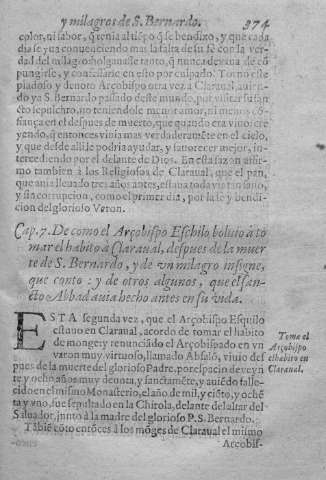 y milagros de S. Bernardo. 374
color, ni sabor, q̃ tenia al tiẽpo q̃ se bendixo, y que cada
dia se yua conuenciendo mas la falta de su fè con la ver-
dad del milagro: holganasse tanto, q̃ nunca dexaua de cõ
pungirse, y confessarse en esto por culpado. Torno este
piadoso y deuoto Arçobispo otra vez a Claraual, auiẽ-
do ya S. Bernardo passado deste mundo, por visitar su san
cto sepulchro, no teniendole menos amor, ni menos cõ
fiança en el despues de muerto, que quando era viuo: cre
yendo, q̃ entonces viuia mas verdaderamẽte en el cielo,
y que desde alli le podria ayudar, y fauorecer mejor, in-
tercediendo por el delante de Dios. En esta sazon afir-
mo tambien à los Religiosos de Claraual, que el pan,
que auia lleuado tres años antes, estaua toda via tan sano,
y sin corrupcion, como el primer dia, por la fe y bendi-
cion del glorioso Varon.
Cap. 7. De como el Arçobispo Eschilo boluio à to
mar el habito à Claraual, despues de la muer
te de S. Bernardo, y de vn milagro insigne,
que conto: y de otros algunos, que el san-
cto Abbad auia hecho antes en su vida.
ESTA segunda vez, que el Arçobispo Esquilo
estauo en Claraual, acordo de tomar el habito
de monge: y renunciãdo el Arçobispado en vn
varon muy virtuoso, llamado Absalõ, viuio des
pues de la muerte del glorioso Padre, por espacio de veyn
te y ocho años muy deuota, y sanctamẽte, y auiẽdo falle-
cido en el mismo Monasterio, el año de mil, y ciẽto, y ochẽ
ta y vno, fue sepultado en la Chirola, delante del altar del
Saluador, junto à la madre del glorioso P. S. Bernardo.
Tãbiẽ cõto entõces à los mõges de Claraual el mismo
Arcobis-
Toma el
Arçobispo
el habito en
Claraual.